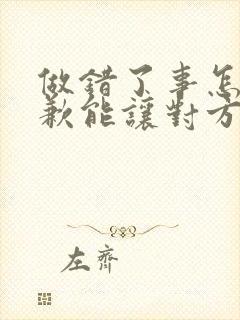 做錯了事怎
歉能讓對方
左齊